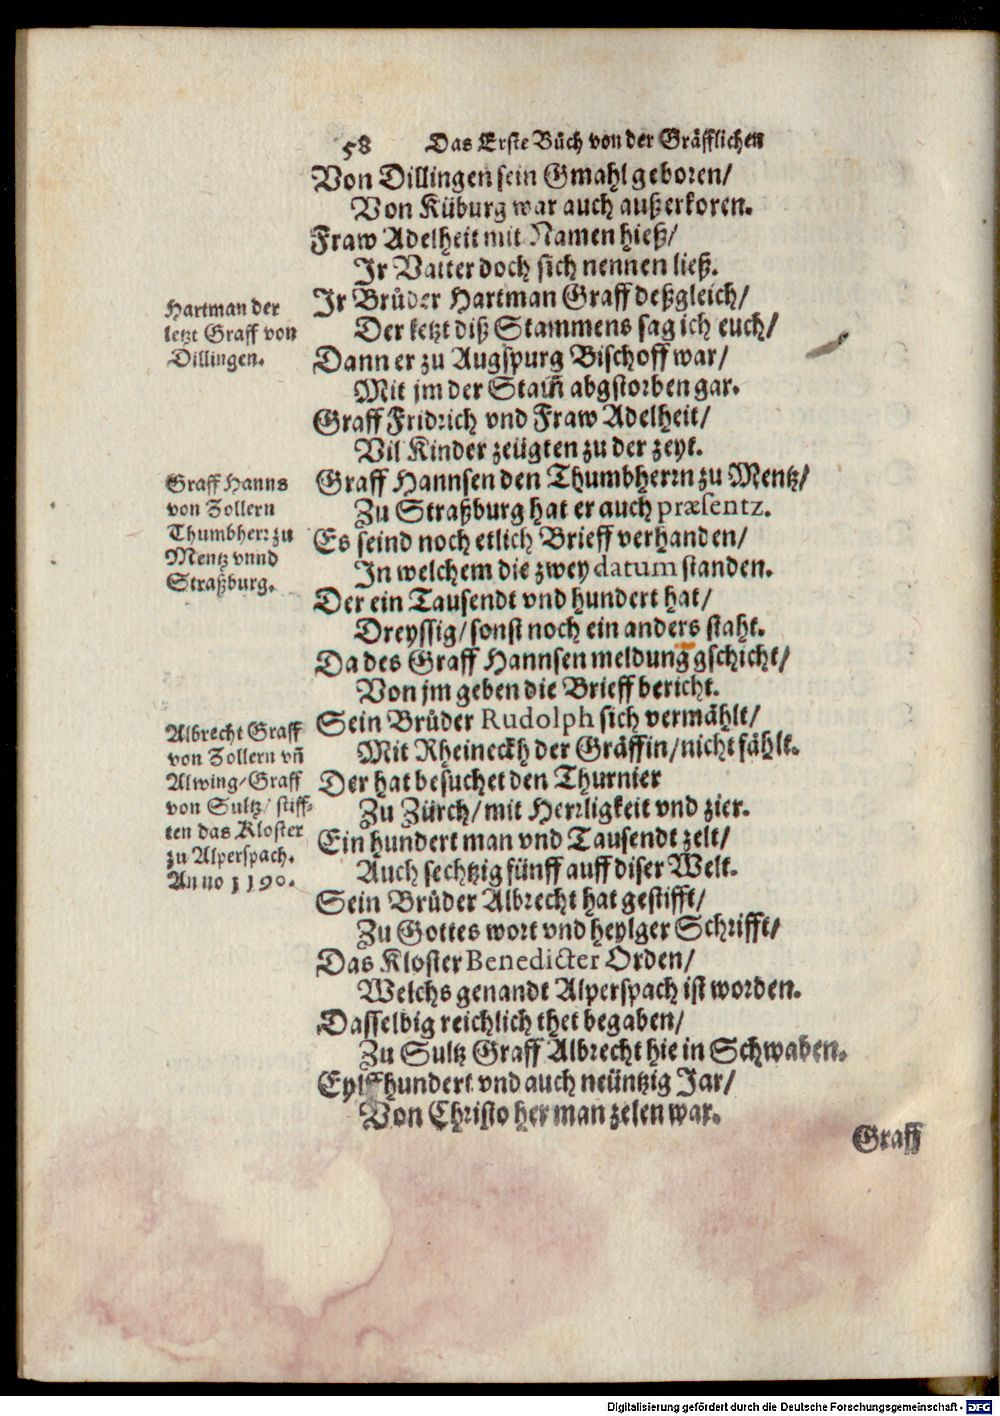 58 Das Erste Bůch von der Gräfflichen
Von Dillingen sein Gmahl geboren/
Von Küburg war auch außerkoren.
Fraw Adelheit mit Namen hieß/
Jr Vatter doch sich nennen ließ.
Hartman der
letzt Graff von
Dillingen.
Jr Brůder Hartman Graff deßgleich/
Der letzt diß Stammens sag ich euch/
Dann er zu Augspurg Bischoff war/
Mit jm der Stam̃ abgstorben gar.
Graff Fridrich vnd Fraw Adelheit/
Vil Kinder zeügten zu der zeyt.
Graff Hanns
von Zollern
Thumbherr zu
Mentz vnnd
Straßburg.
Graff Hannsen den Thumbherrn zu Mentz/
Zu Straßburg hat er auch præsentz.
Es seind noch etlich Brieff verhanden/
Jn welchem die zwey datum standen.
Der ein Tausendt vnd hundert hat/
Dreyssig/ sonst noch ein anders staht.
Da des Graff Hannsen meldung gschicht/
Von jm geben die Brieff bericht.
Albrecht Graff
von Zollern vñ
Alwing/ Graff
von Sultz/ stiff-
ten das Kloster
zu Alperspach.
Anno 1190.
Sein Brůder Rudolph sich vermählt/
Mit Rheineckh der Gräffin/ nicht fählt.
Der hat besuchet den Thurnier
Zu Zürch/ mit Herrligkeit vnd zier.
Ein hundert man vnd Tausendt zelt/
Auch sechtzig fünff auff diser Welt.
Sein Brůder Albrecht hat gestifft/
Zu Gottes wort vnd heylger Schrifft/
Das Kloster Benedicter Orden/
Welchs genandt Alperspach ist worden.
Dasselbig reichlich thet begaben/
Zu Sultz Graff Albrecht hie in Schwaben.
Eylffhundert vnd auch neüntzig Jar/
Von Christo her man zelen war.
Graff
Digitalisierung gefördert durch die Deutsche Forschungsgemeinschaft - DFG